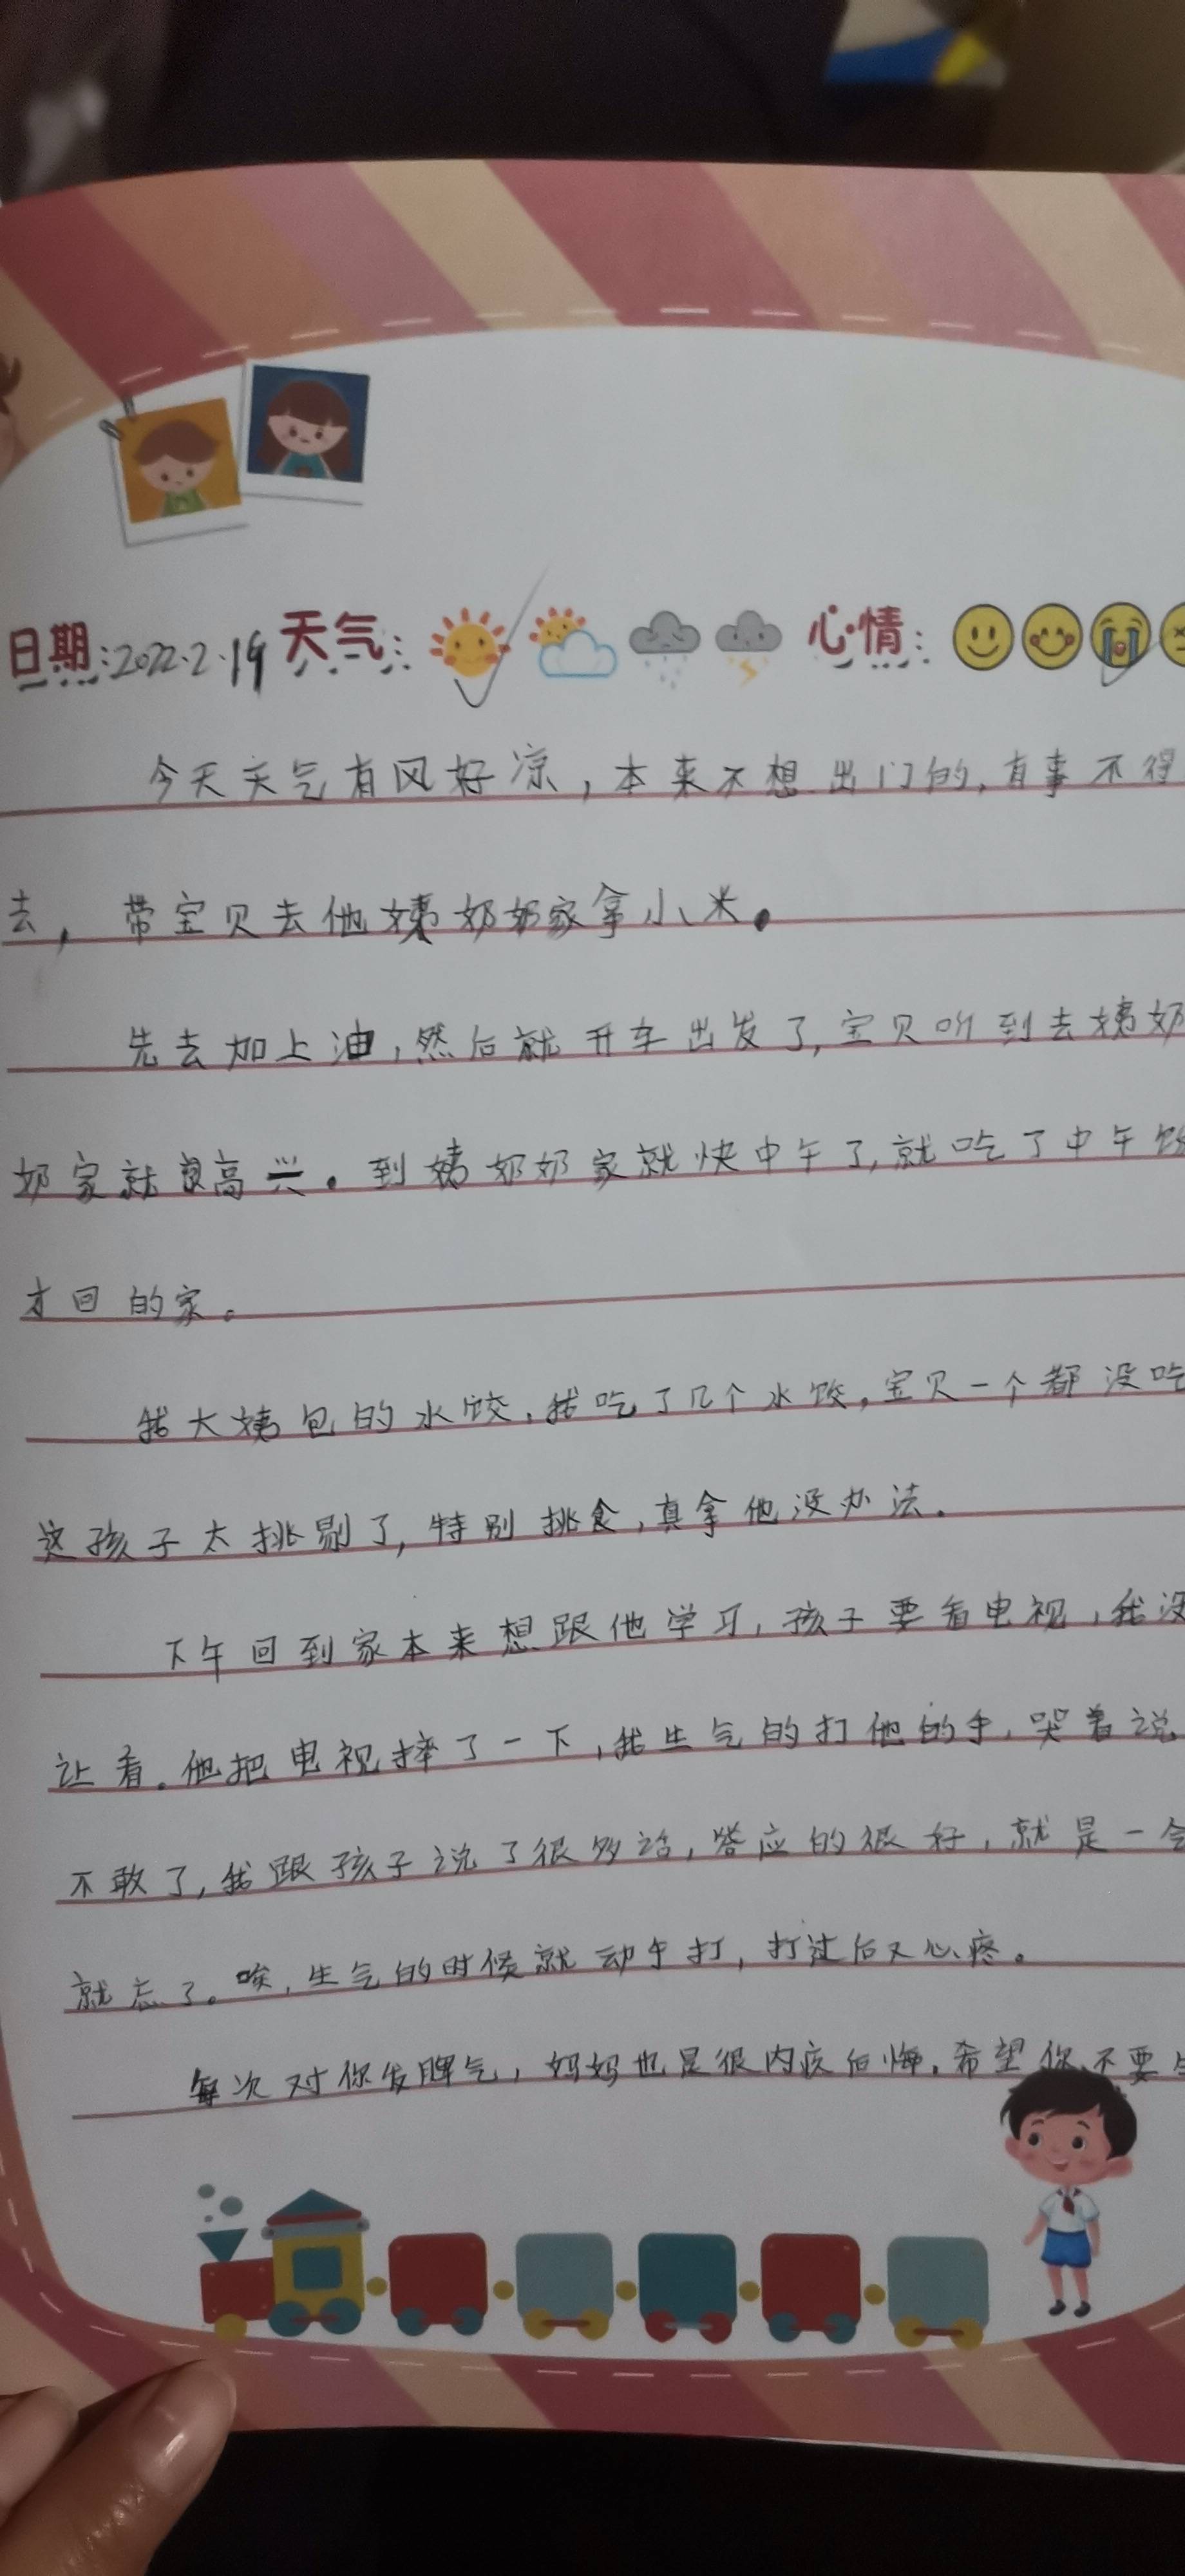 日期:2022.2.19 天气: 心情:
今天天气有风好凉,本来不想出门的,有事不得
去,带宝贝去他姨奶奶家拿小米。
先去加上油,然后就开车出发了,宝贝听到去姨奶
奶家就很高兴。到姨奶奶家就快中午了,就吃了中午饭
才回的家。
我大姨包的水饺,我吃了几个水饺,宝贝一个都没吃
这孩子太挑剔了,特别挑食,真拿他没办法.
下午回到家本来想跟他学习,孩子要看电视,我没
让看。他把电视摔了一下,我生气的打他的手,哭着说
不敢了,我跟孩子说了很多话,答应的很好,就是一会
就忘了。唉,生气的时候就动手打,打过后又心疼。
每次对你发脾气,妈妈也是很内疚后悔,希望你不要